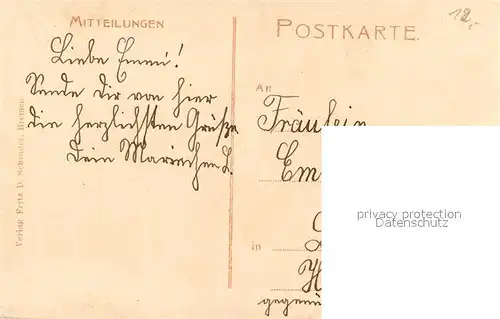 MITTEILUNGEN
POSTKARTE.
12,-
Liebe Emmi!
Sende Dir von hier
die herzlichsten Grüße
Dein Mariechen L.
An
Fräulein
Em
in
H
gegenü
privacy protection
Datenschutz
Verlag: Fritz D. Schrader, Bremen